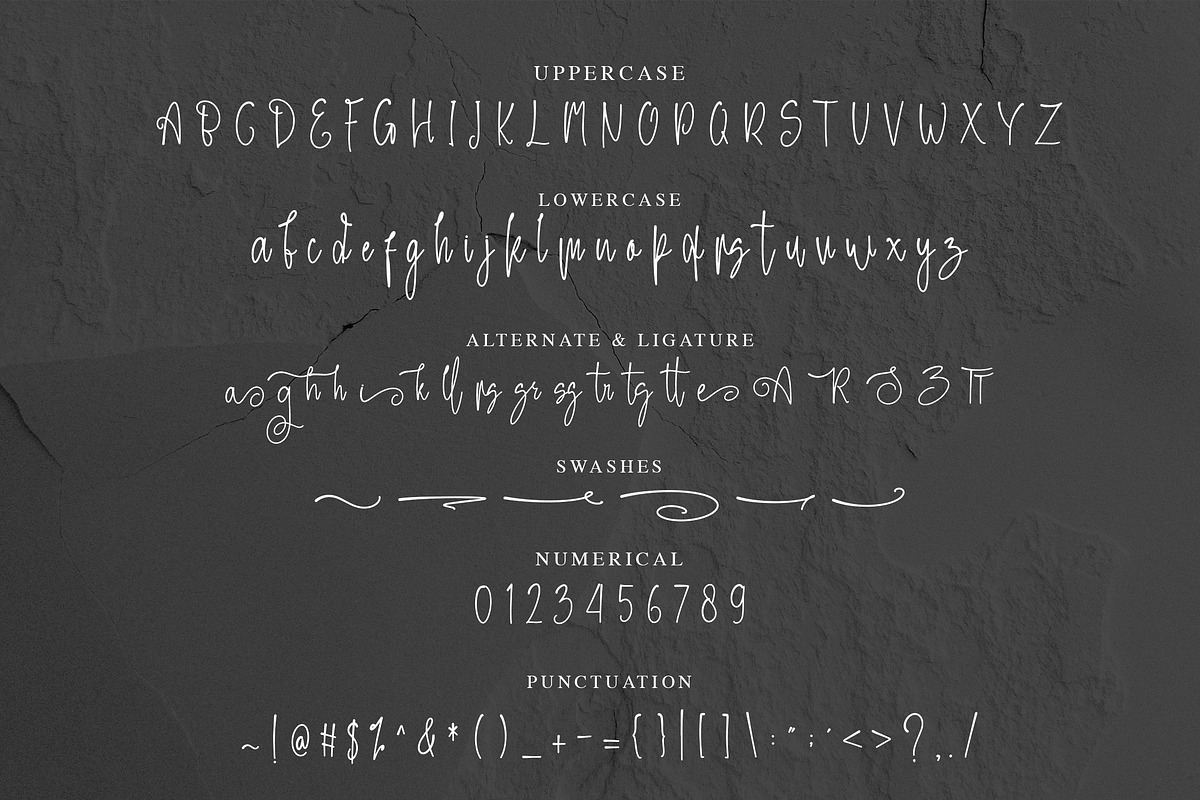 UPPERCASE
A B C D E F G H I J K L M N O P Q R S T U V W X Y Z
LOWERCASE
a b c d e f g h i j k l m n o p q r s t u v w x y z
ALTERNATE & LIGATURE
a g h h i k ll rs gr sg tr ts tt e A R S Z TT
SWASHES
NUMERICAL
0 1 2 3 4 5 6 7 8 9
PUNCTUATION
~ ! @ # $ % ^ & * ( ) _ + - = { } | [ ] \ : " ; ' < > ? , . /